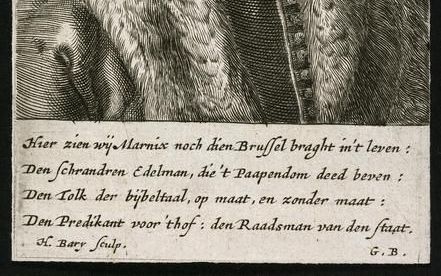 Hier zien wij Marnix noch dien Brussel braght in't leven:
Den schrandren Edelman, die 't Paapendom deed beven:
Den Tolk der bijbeltaal, op maat, en zonder maat:
Den Predikant voor 'thof: den Raadsman van den staat.
H. Bary sculp.
G. B.